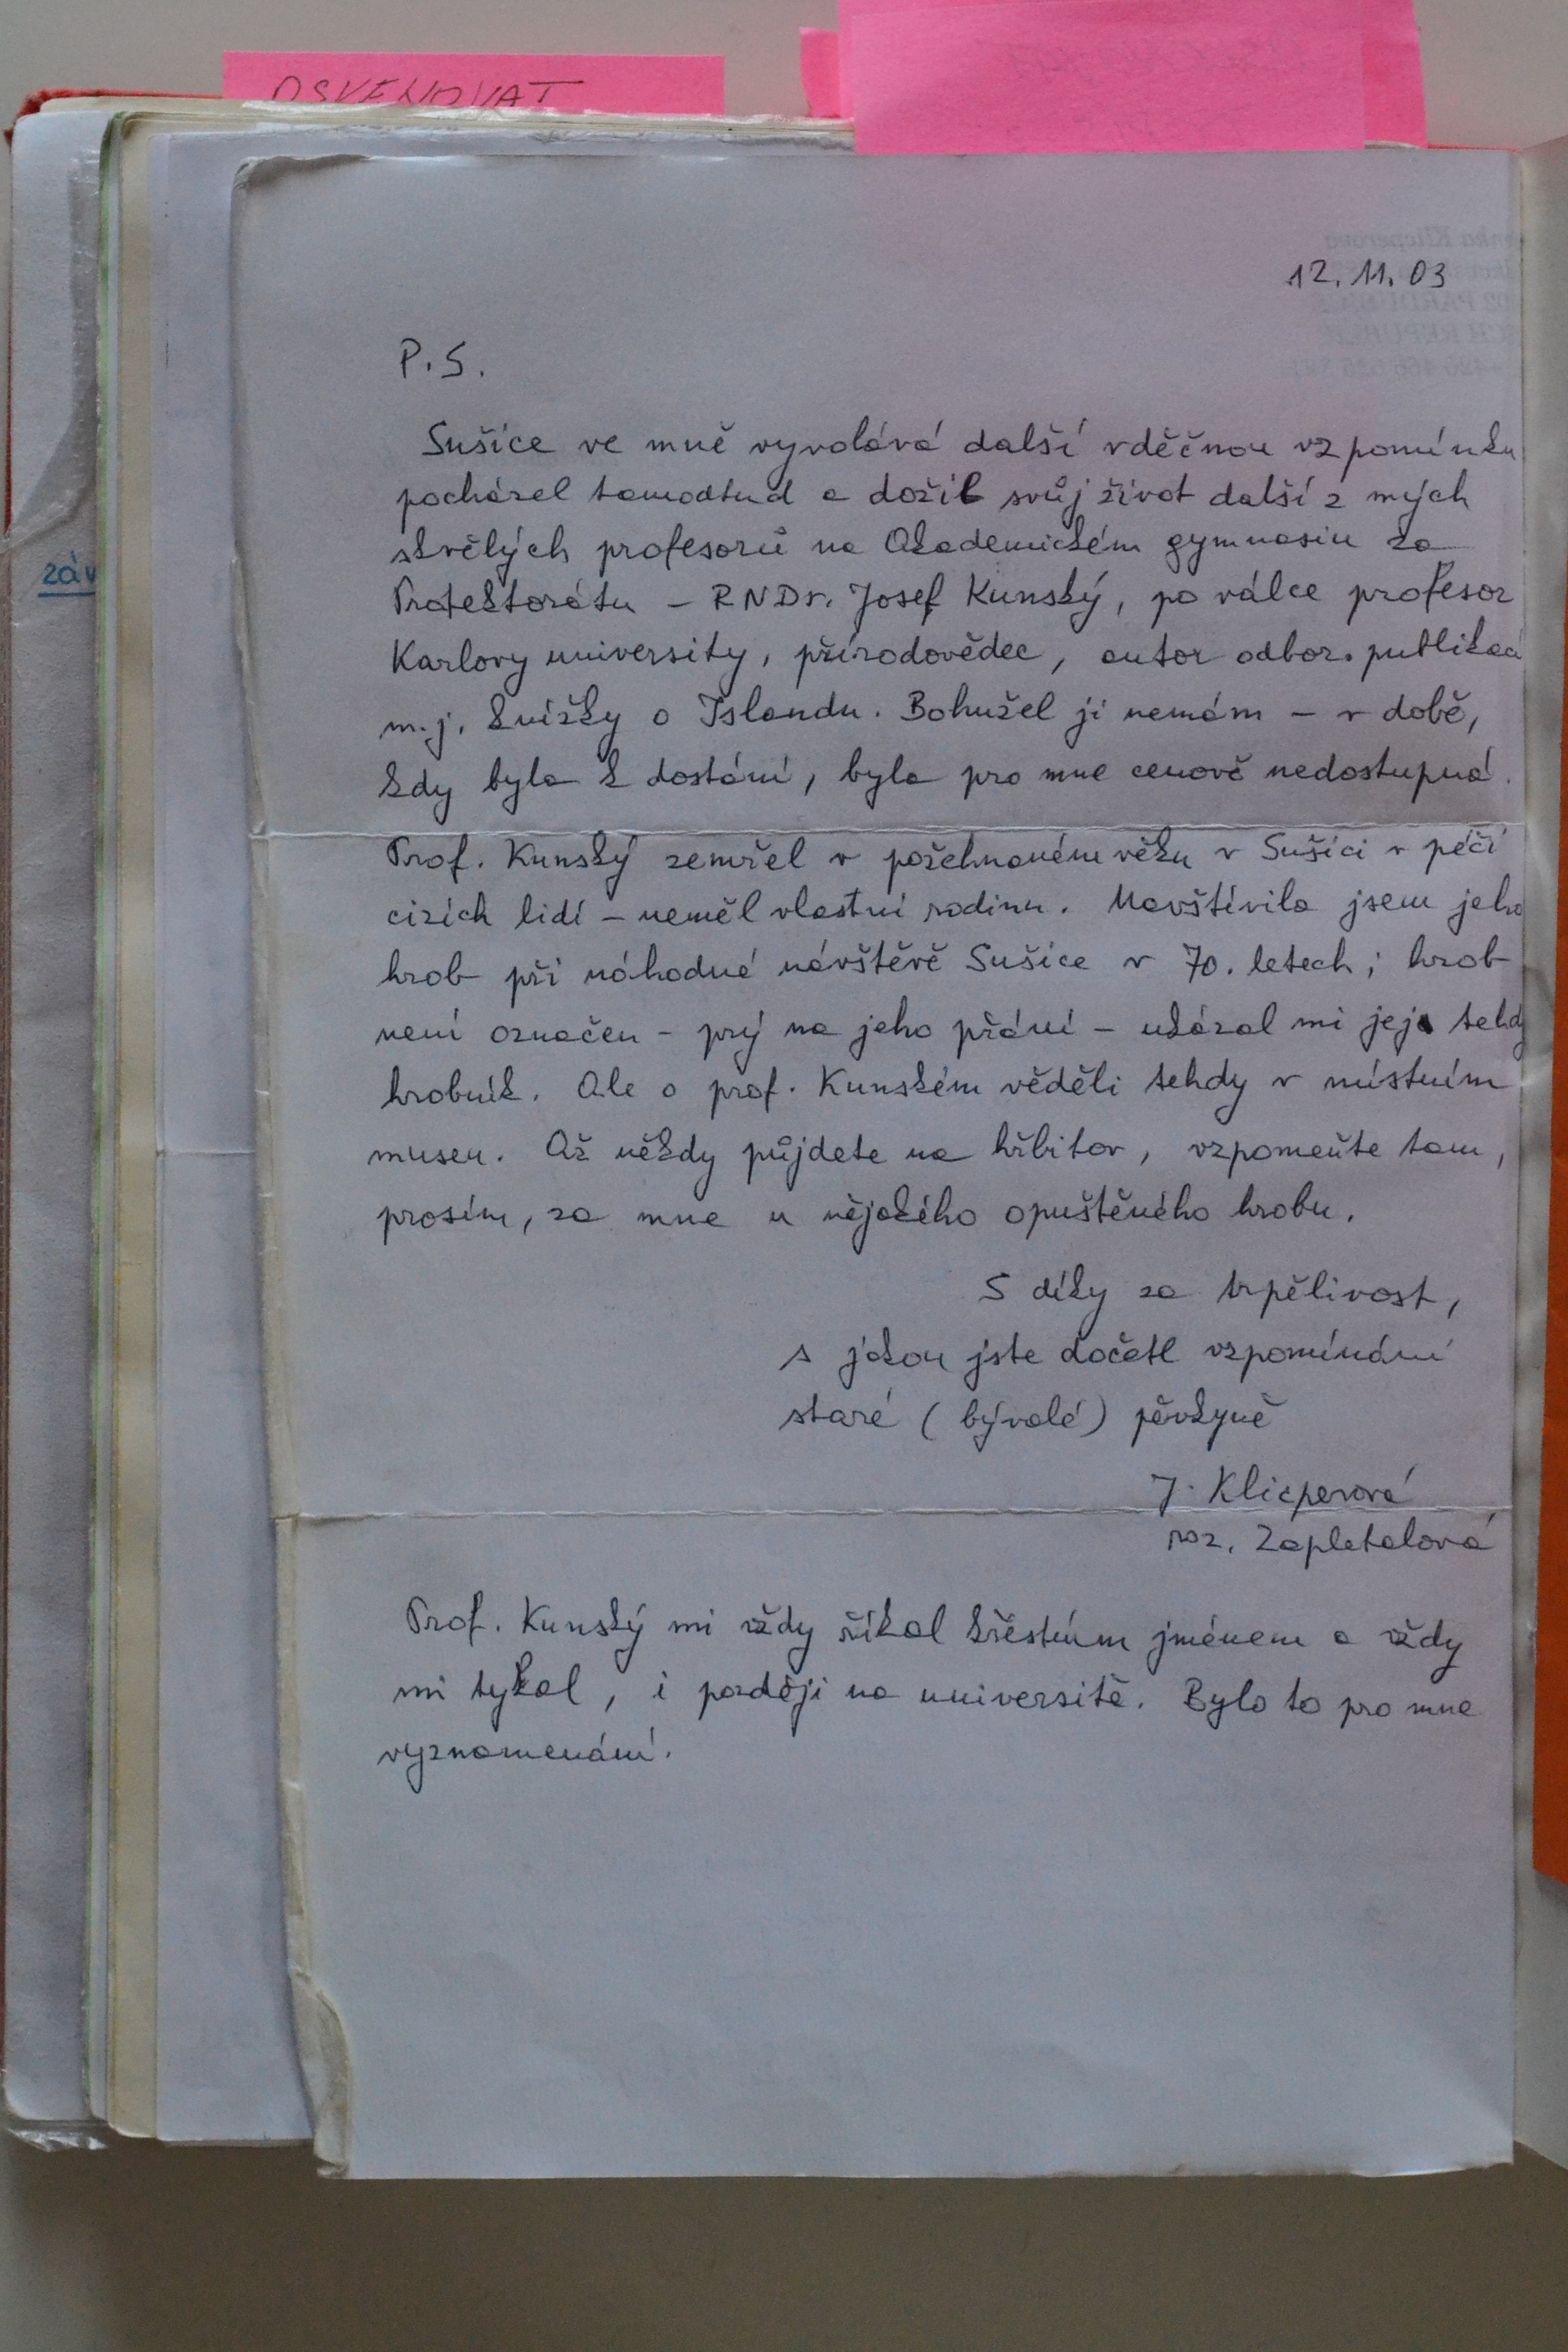 OSVĚNOVAT
12.11.03
P.S.
Sušice ve mně vyvolává další vděčnou vzpomínku
pocházel tamodtud a dožil svůj život další z mých
skvělých profesorů na Akademickém gymnasiu za
Protektorátu - RNDr. Josef Kunský, po válce profesor
Karlovy university, přírodovědec, autor odbor. publikací
m.j. knížky o Islandu. Bohužel ji nemám - v době,
kdy byla k dostání, byla pro mne cenově nedostupná.
Prof. Kunský zemřel v požehnaném věku v Sušici v péči
cizích lidí - neměl vlastní rodinu. Navštívila jsem jeho
hrob při náhodné návštěvě Sušice v 70. letech; hrob
není označen - prý na jeho přání - ukázal mi jej tehdy
hrobník. Ale o prof. Kunském věděli tehdy v místním
museu. Až někdy půjdete na hřbitov, vzpomeňte tam,
prosím, za mne u nějakého opuštěného hrobu.
S díky za trpělivost,
s jakou jste dočetl vzpomínání
staré (bývalé) pěvkyně
J. Klicperová
roz. Zapletalová
Prof. Kunský mi vždy říkal křestním jménem a vždy
mi tykal, i později na universitě. Bylo to pro mne
vyznamenání.
záv